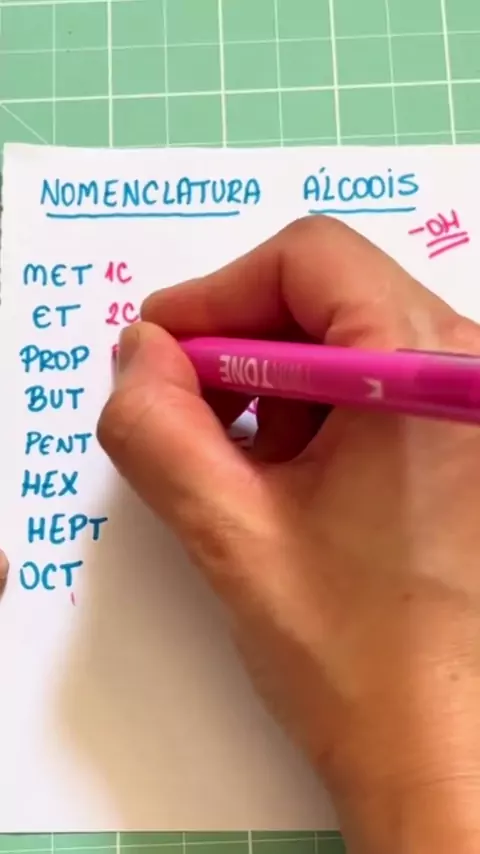 NOMENCLATURA ÁLCOOIS
-OH
MET 1C
ET 2C
PROP
BUT
PENT
HEX
HEPT
OCT